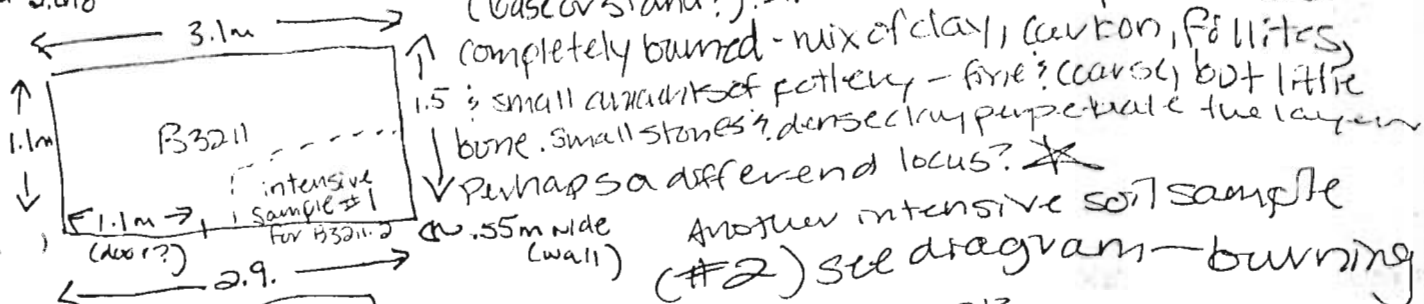 3.1m
1.1m
1.5
B3211
intensive
sample #1
for B3211.2
1.1m
(door?)
2.9.
.55m wide
(wall)
completely burned - mix of clay, carbon,
& small amounts of pottery - fine & coarse, but little
bone. Small stones & dense clay the layer
Perhaps a different locus?
Another intensive soil sample
(#2) see diagram - burning